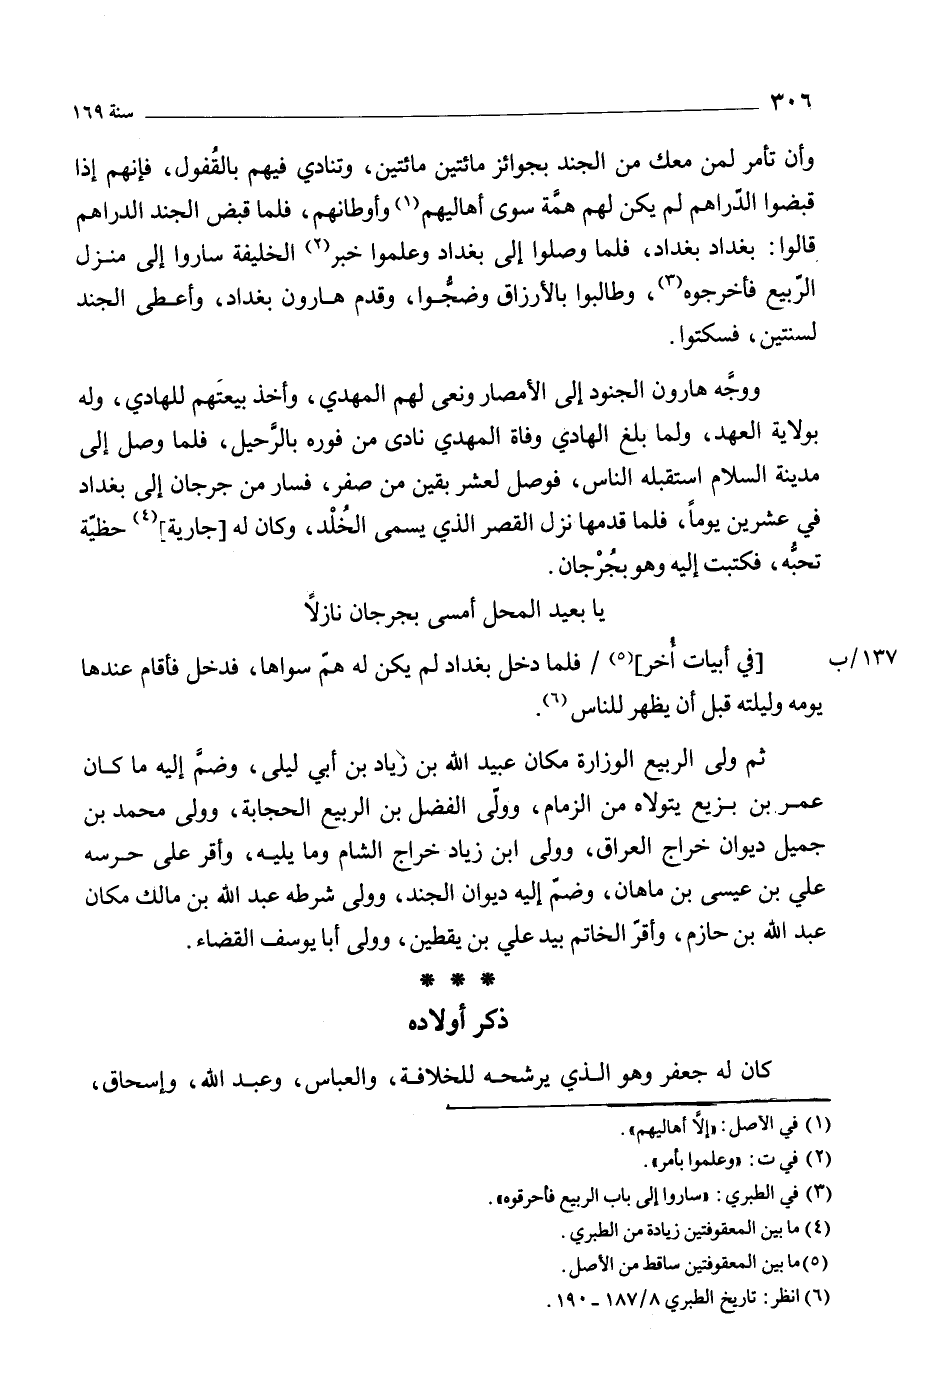 ٣٠٦ سنة ١٦٩
وأن تأمر لمن معك من الجند بجوائز مائتين مائتين، وتنادي فيهم بالقُفول، فإنهم إذا
قبضوا الدّراهم لم يكن لهم همَّة سوى أهاليهم(١) وأوطانهم، فلما قبض الجند الدراهم
قالوا: بغداد بغداد، فلما وصلوا إلى بغداد وعلموا خبر(٢) الخليفة ساروا إلى منزل
الرّبيع فأخرجوه(٣)، وطالبوا بالأرزاق وضجُّوا، وقدم هارون بغداد، وأعطى الجند
لسنتين، فسكتوا.
ووجَّه هارون الجنود إلى الأمصار ونعى لهم المهدي، وأخذ بيعتَهم للهادي، وله
بولاية العهد، ولما بلغ الهادي وفاة المهدي نادى من فوره بالرَّحيل، فلما وصل إلى
مدينة السلام استقبله الناس، فوصل لعشر بقين من صفر، فسار من جرجان إلى بغداد
في عشرين يوماً، فلما قدمها نزل القصر الذي يسمى الخُلْد، وكان له [جارية](٤) حظيّة
تحبُّه، فكتبت إليه وهو بجُرْجان.
يا بعيد المحل أمسى بجرجان نازلاً
١٣٧/ب [في أبيات أُخر](٥) / فلما دخل بغداد لم يكن له همّ سواها، فدخل فأقام عندها
يومه وليلته قبل أن يظهر للناس(٦).
ثم ولى الربيع الوزارة مكان عبيد الله بن زياد بن أبي ليلى، وضمَّ إليه ما كان
عمر بن بزيع يتولاه من الزمام، وولّى الفضل بن الربيع الحجابة، وولى محمد بن
جميل ديوان خراج العراق، وولى ابن زياد خراج الشام وما يليه، وأقر على حرسه
علي بن عيسى بن ماهان، وضمّ إليه ديوان الجند، وولى شرطه عبد الله بن مالك مكان
عبد الله بن حازم، وأقرّ الخاتم بيد علي بن يقطين، وولى أبا يوسف القضاء.
* * *
ذكر أولاده
كان له جعفر وهو الذي يرشحه للخلافة، والعباس، وعبد الله، وإسحاق،
(١) في الأصل: «إلَّا أهاليهم».
(٢) في ت: «وعلموا بأمر».
(٣) في الطبري: «ساروا إلى باب الربيع فأحرقوه».
(٤) ما بين المعقوفتين زيادة من الطبري.
(٥) ما بين المعقوفتين ساقط من الأصل.
(٦) انظر: تاريخ الطبري ٨/١٨٧ ـ ١٩٠.